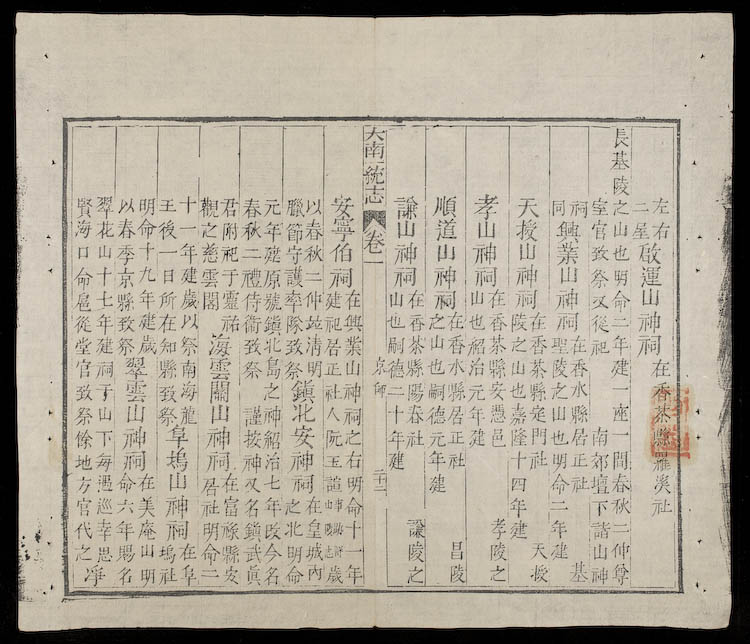 左右
二星
啟運山神祠
在香茶縣羅溪社
長基陵之山也明命二年建一座一間春秋二仲尊
室官致祭又從祀 南郊壇下諸山神
祠
同
興業山神祠
在香水縣居正社 基
聖陵之山也明命二年建
天授山神祠
在香茶縣定門社 天授
陵之山也嘉隆十四年建
孝山神祠
在香茶縣安憑邑 孝陵之
山也紹治元年建
順道山神祠
在香水縣居正社 昌陵
之山也嗣德元年建
謙山神祠
在香茶縣陽春社 謙陵之
山也嗣德二十年建
大南一統志 卷一 京師 二十二
安寧伯祠
在興業山神祠之右明命十一年
建祀居正社人阮玉諠事跡詳山陵志歲
以春秋二仲並清明
臘節守護率隊致祭
鎮北安神祠
在皇城內
之北明命
元年建原號鎮北島之神紹治七年改今名
春秋二禮侍衛致祭 謹按神又名鎮武眞
君附祀于靈祐
觀之慈雲閣
海雲關山神祠
在富祿縣安
居社明命二
十一年建歲以祭南海龍
王後一日所在知縣致祭
阜塢山神祠
在阜
塢社
明命十九年建歲
以春秋季京縣致祭
翠雲山神祠
在美庵山明
命六年賜名
翠花山十七年建祠于山下每遇巡幸思
賢海口命扈從堂官致祭餘地方官代之